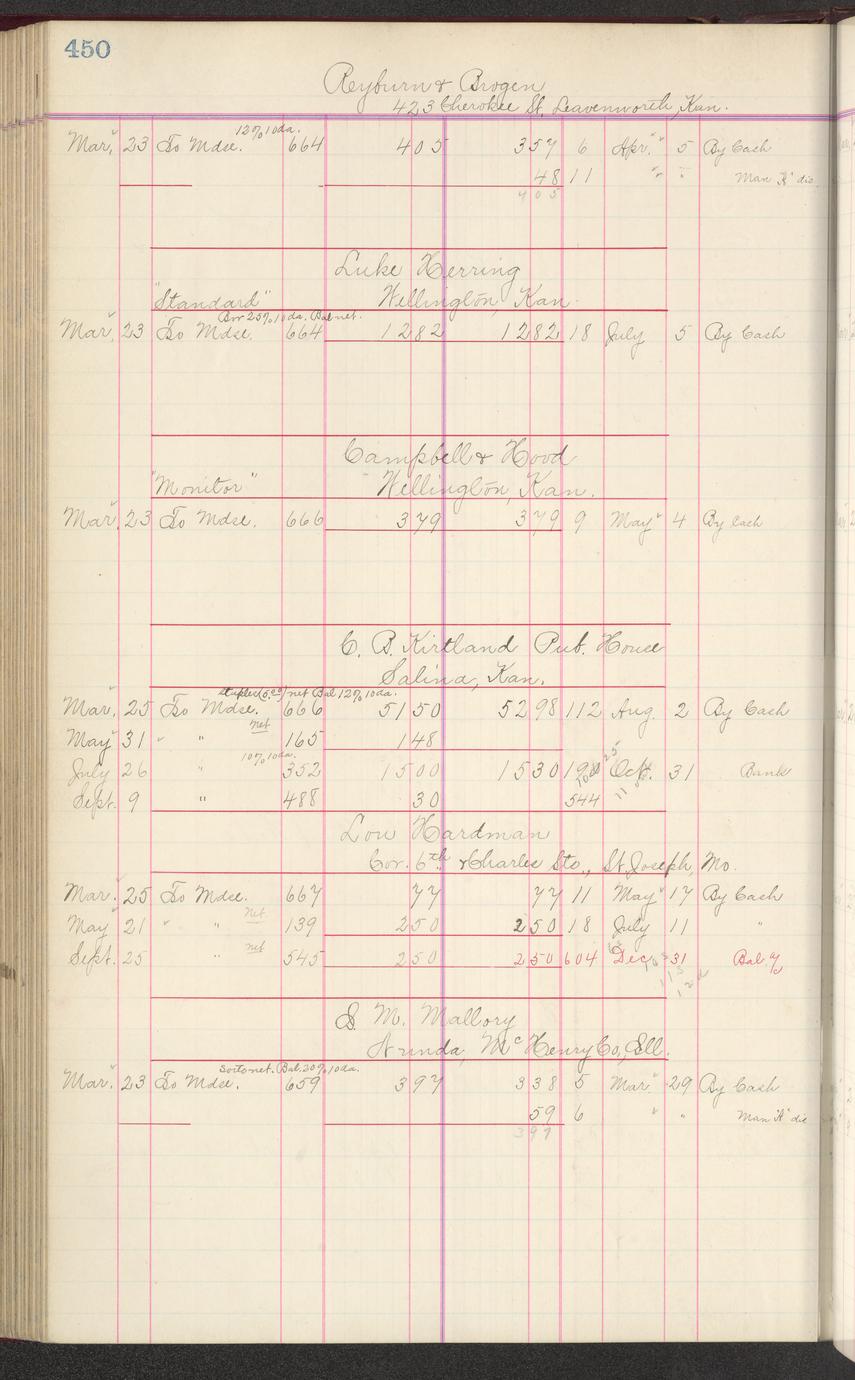 450
Reyburn & Brogen
423 Cherokee St. Leavenworth, Kan.
12% 10 da.
Mar. 23 To Mdse. 664 405 357 6 Apr. 5 By Cash
48 11 " " Man "K" dis
405
Luke Herring
"Standard" Wellington, Kan.
Bor 25% 10 da. Bal net.
Mar. 23 To Mdse. 664 1282 1282 18 July 5 By Cash
Campbell & Hood
"Monitor" Wellington, Kan.
Mar. 23 To Mdse. 666 379 379 9 May 4 By Cash
C. B. Kirtland Pub. House
Salina, Kan.
net Bal 12% 10 da.
Mar. 25 To Mdse. 666 5150 5298 112 Aug. 2 By Cash
net
May 31 " " 165 148
10% 10 da.
July 26 " 352 1500 1530 Oct. 31 Bank
Sept. 9 " 488 30 544
Lou Hardman
Cor. 6th & Charles Sts., St. Joseph, Mo.
Mar. 25 To Mdse. 667 77 77 11 May 17 By Cash
Net
May 21 " " 139 250 250 18 July 11 "
net
Sept. 25 " 545 250 250 604 Dec. 31 Bal. %
S. M. Mallory
Nunda, McHenry Co., Ill.
Sorts net. Bal. 20% 10 da.
Mar. 23 To Mdse. 659 397 338 5 Mar. 29 By Cash
59 6 " " Man "K" dis
397